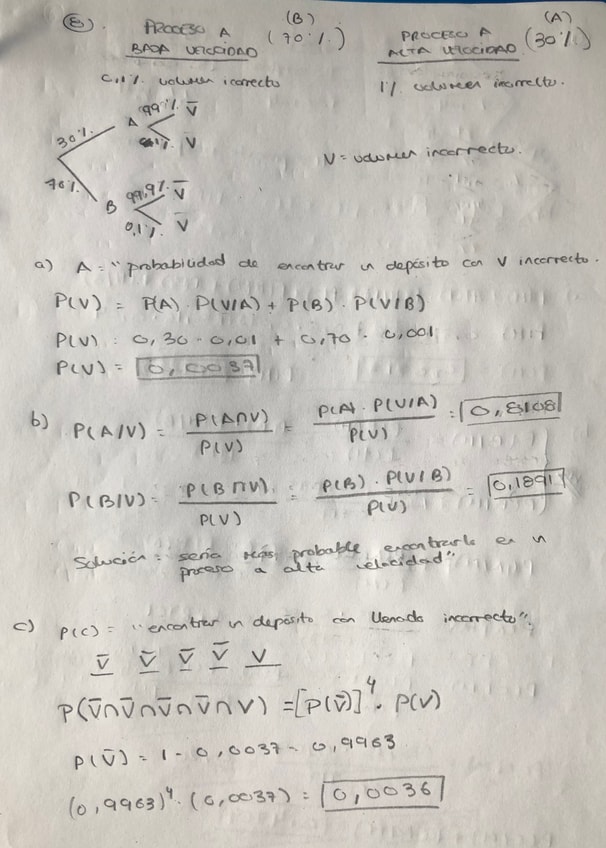 8). PROCESO A (B) (70%.) PROCESO A (A) (30%)
BAJA VELOCIDAD ALTA VELOCIDAD
0,1% volumen icorrecto 1% volumen incorrecto.
99% V̅
30%. A
1% V
V = volumen incorrecto.
70%. 99,9% V̅
B
0,1% V̅
a) A = "probabilidad de encontrar un depósito con V incorrecto.
P(V) = P(A) · P(V/A) + P(B) · P(V/B)
P(V) : 0,30 · 0,01 + 0,70 · 0,001
P(V) = 0,0037
b) P(A/V) = P(A∩V) / P(V) = P(A) · P(V/A) / P(V) = 0,8108
P(B/V) = P(B∩V) / P(V) = P(B) · P(V/B) / P(V) = 0,1891
Solución = sería más probable encontrarlo en un
proceso a alta velocidad"
c) P(C) = "encontrar un depósito con llenado incorrecto"
V̅ V̅ V̅ V̅ V
P(V̅∩V̅∩V̅∩V̅∩V) = [P(V̅)]⁴ · P(V)
P(V̅) = 1 - 0,0037 = 0,9963
(0,9963)⁴ · (0,0037) = 0,0036